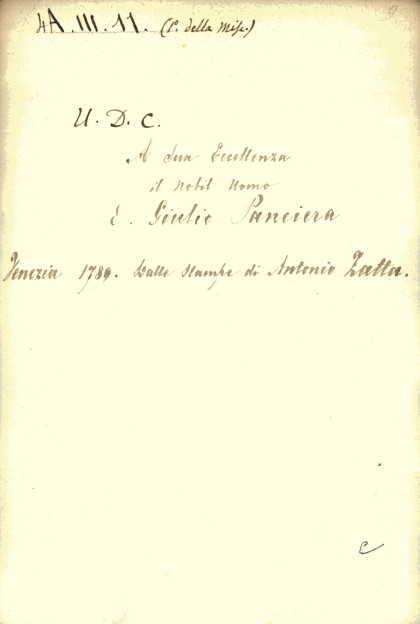 4A.III.11. (1º della Misc.)
U. D. C.
A Sua Eccellenza
il Nobil Uomo
E. Giulio Panciera
Venezia 1789. Dalle Stampe di Antonio Zatta.